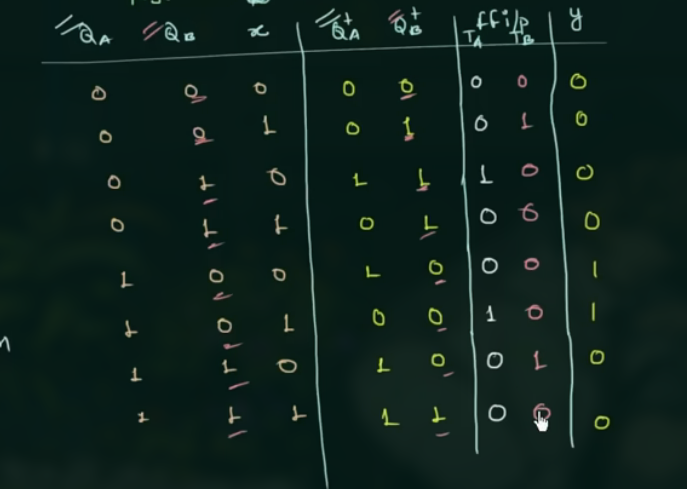 Q_A Q_B x Q_A^+ Q_B^+ ff i/p T_A T_B y
0 0 0 0 0 0 0 0
0 0 1 0 1 0 1 0
0 1 0 1 1 1 0 0
0 1 1 0 1 0 0 0
1 0 0 1 0 0 0 1
1 0 1 0 0 1 0 1
1 1 0 1 0 0 1 0
1 1 1 1 1 0 0 0